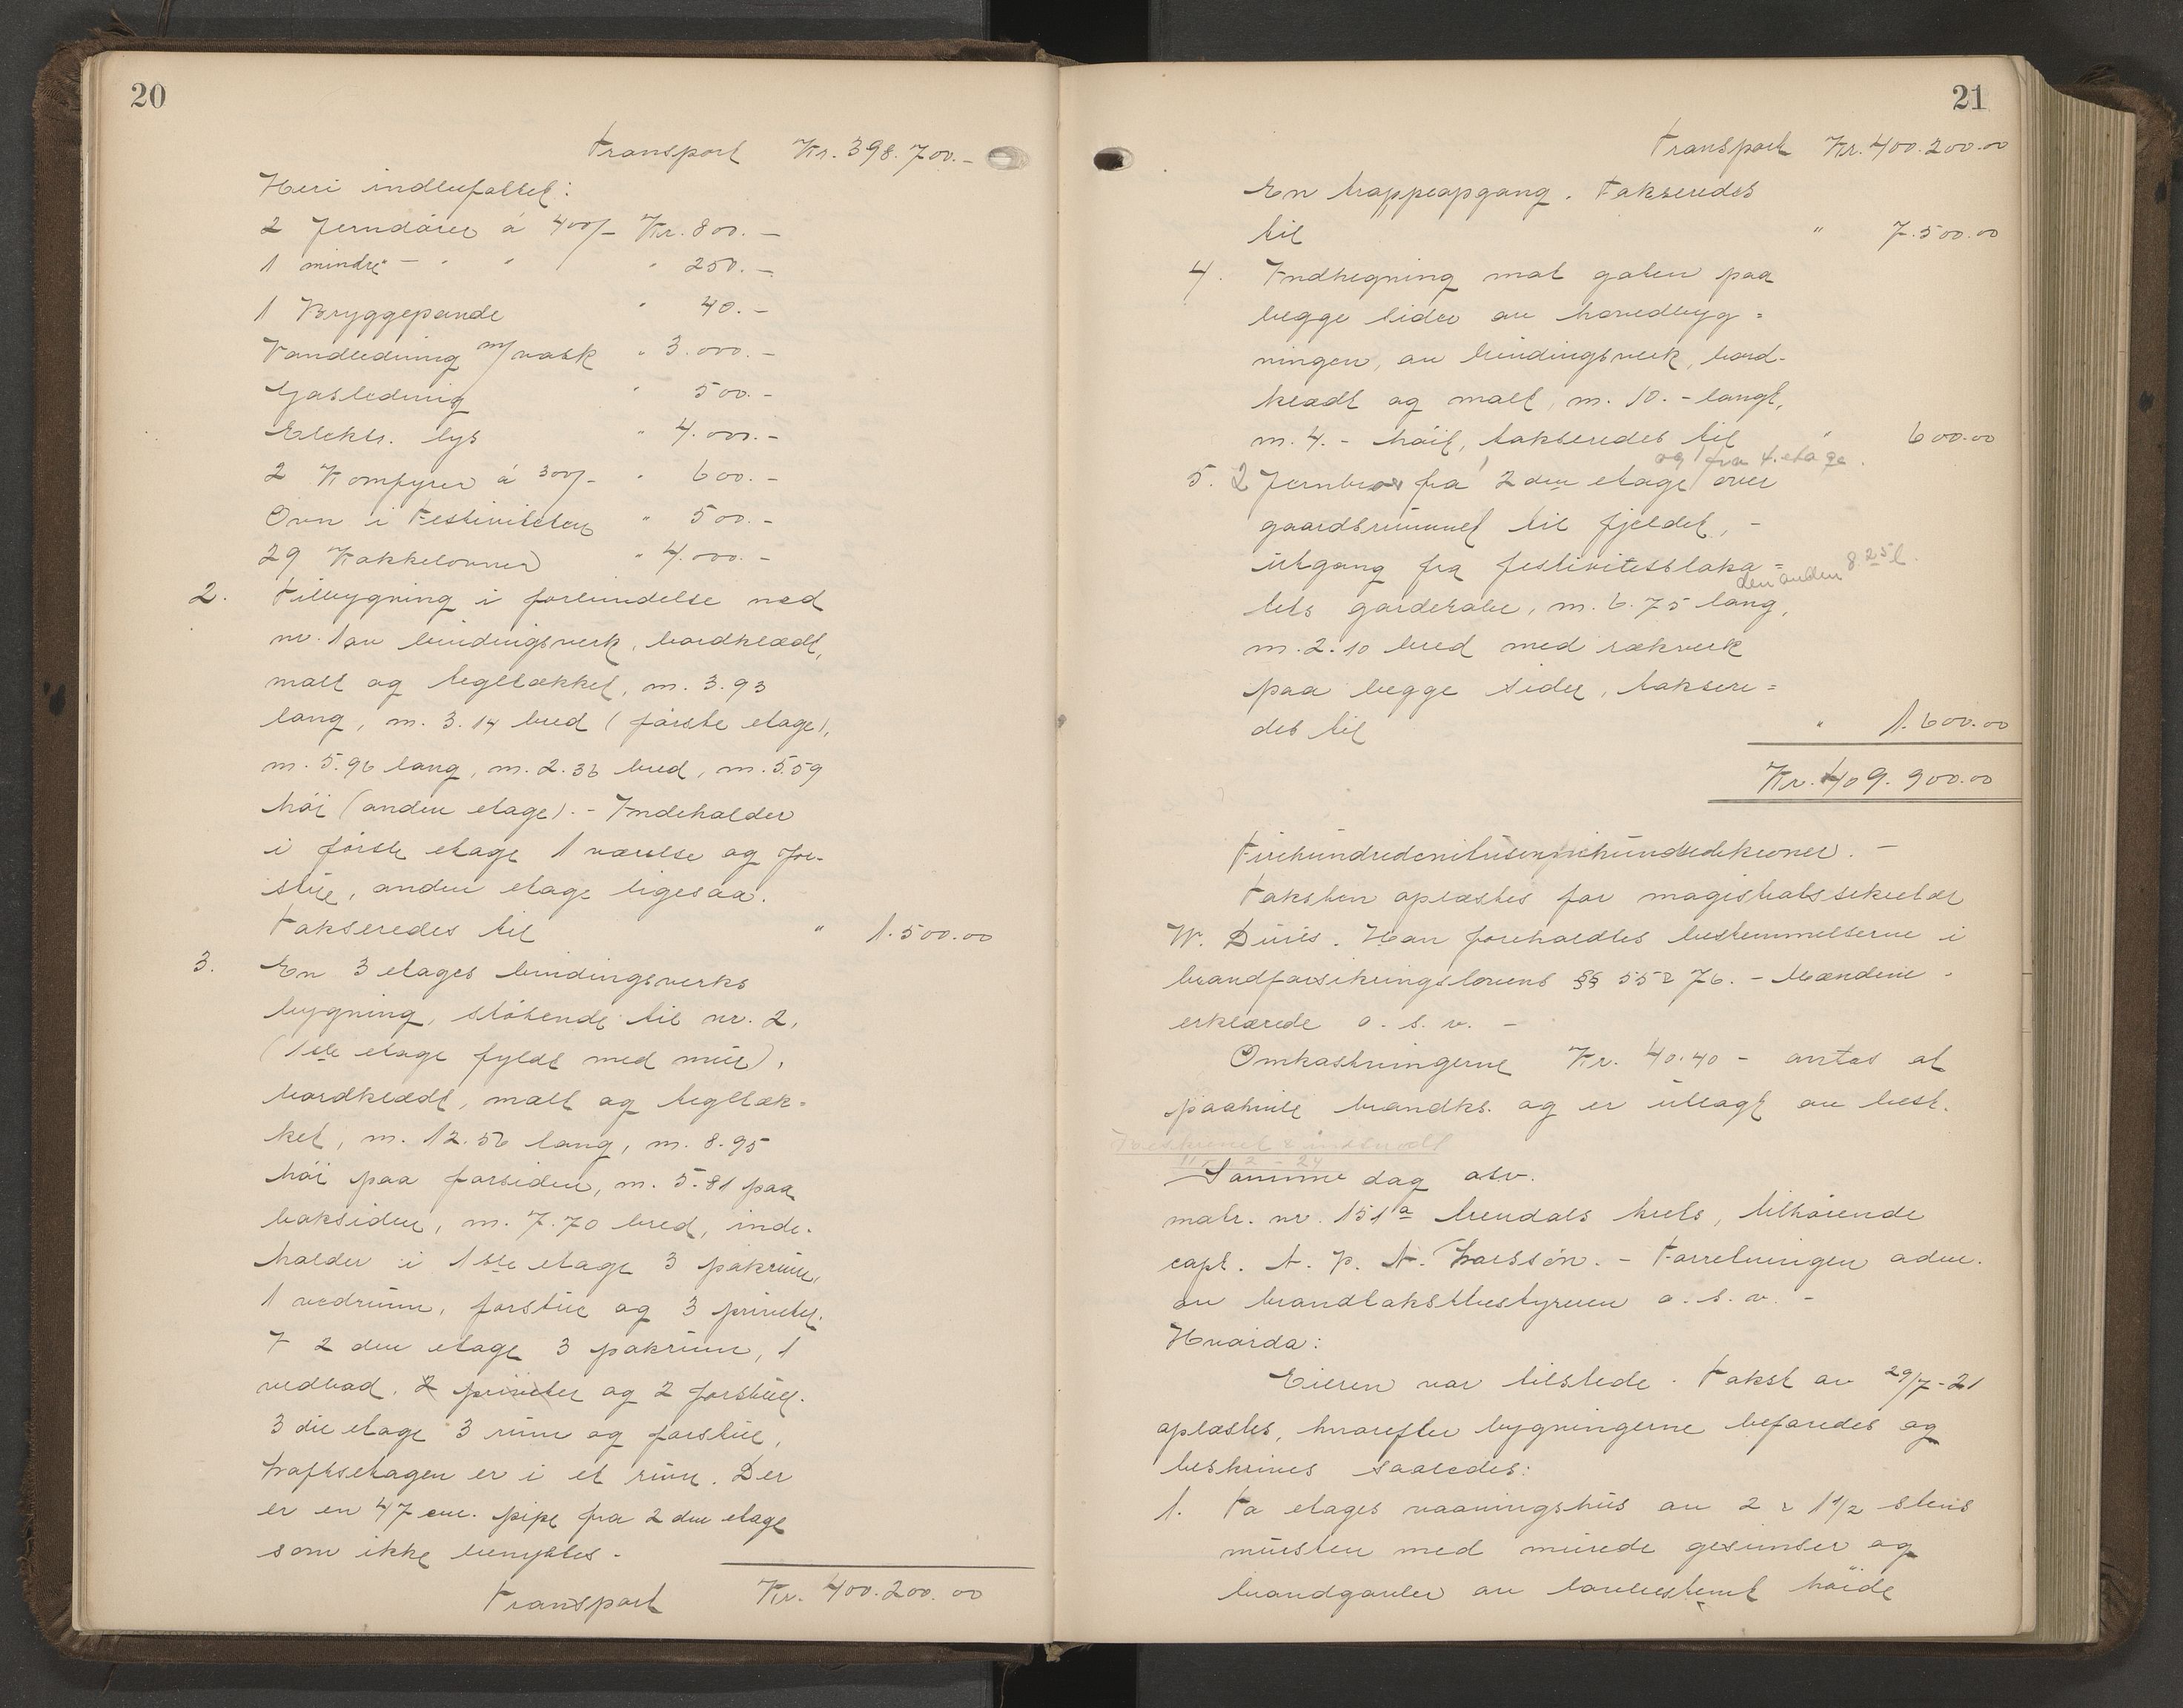 20
Transport Kr. 398.700.-
Heri indbefattet:
2 Jerndører á 400/- Kr. 800.-
1 mindre - " " " 250.-
1 Bryggepande " 40.-
Vandledning m/vask " 3.000.-
Gasledning " 500.-
Elektr. lys " 4.000.-
2 Komfyrer á 300/- " 600.-
Ovn i Festiviteten " 500.-
29 Kakkelovner " 4.000.-
2. Tilbygning i forbindelse med
nr. 1 av bindingsverk, bordklædt,
malt og tegltækket, m. 3.93
lang, m. 3.14 bred (første etage),
m. 5.96 lang, m. 2.36 bred, m. 5.59
høi (anden etage). - Indeholder
i første etage 1 værelse og for-
stue, anden etage ligesaa.
Takseredes til " 1.500.00
3. En 3 etages bindingsverks
bygning, støtende til nr. 2,
(1ste etage fyldt med mur),
bordklædt, malt og tegltæk=
ket, m. 12.56 lang, m. 8.95
høi paa forsiden, m. 5.81 paa
baksiden, m. 7.70 bred, inde-
holder i 1ste etage 3 pakrum,
1 vedrum, forstue og 3 priveter.
I 2den etage 3 pakrum, 1
vedbod, 2 priveter og 2 forstuer.
3die etage 3 rum og forstue,
Loftsetagen er i et rum. Der
er en 47 cm. pipe fra 2den etage
som ikke benyttes.-
Transport Kr. 400.200.00
21
Transport Kr. 400.200.00
En trappeopgang. Takseredes
til " 7.500.00
4. Indhegning mot gaten paa
begge sider av hovedbyg=
ningen, av bindingsverk, bord-
klædt og malt, m. 10.- langt,
m. 4.- høit, takseredes til " 600.00
og 1 fra 4. etage.
5. 2 Jernbroer fra 2den etage over
gaardsrummet til fjeldet, -
utgang fra festivitetsloka=
den anden 8.25 l.
lets garderobe, m. 6.75 lang,
m. 2.10 bred med rækverk
paa begge sider, taksere=
des til " 1.600.00
Kr. 409.900.00
Firehundredenitusennihundredekroner. -
Taksten oplæstes for magistratssekretær
W. Duús. Han foreholdtes bestemmelserne i
brandforsikringslovens §§ 55 & 76. - Mændene
erklærede o. s. v. -
Omkostningerne Kr. 40.40 - antas at
paahvile brandks. og er utlagt av best.
Samme dag osv.
matr. nr. 151a Arendals kreds, tilhørende
capt. A. P. A. Larssøn. - Forretningen adm.
av brandtakstbestyreren o. s. v. -
Hvorda:
Eieren var tilstede. Takst av 29/7-21
oplæstes, hvorefter bygningerne befaredes og
beskrives saaledes:
1. To etages vaaningshus av 2 & 1 1/2 stens
mursten med murede gesimser og
brandgavler av lovbestemt høide